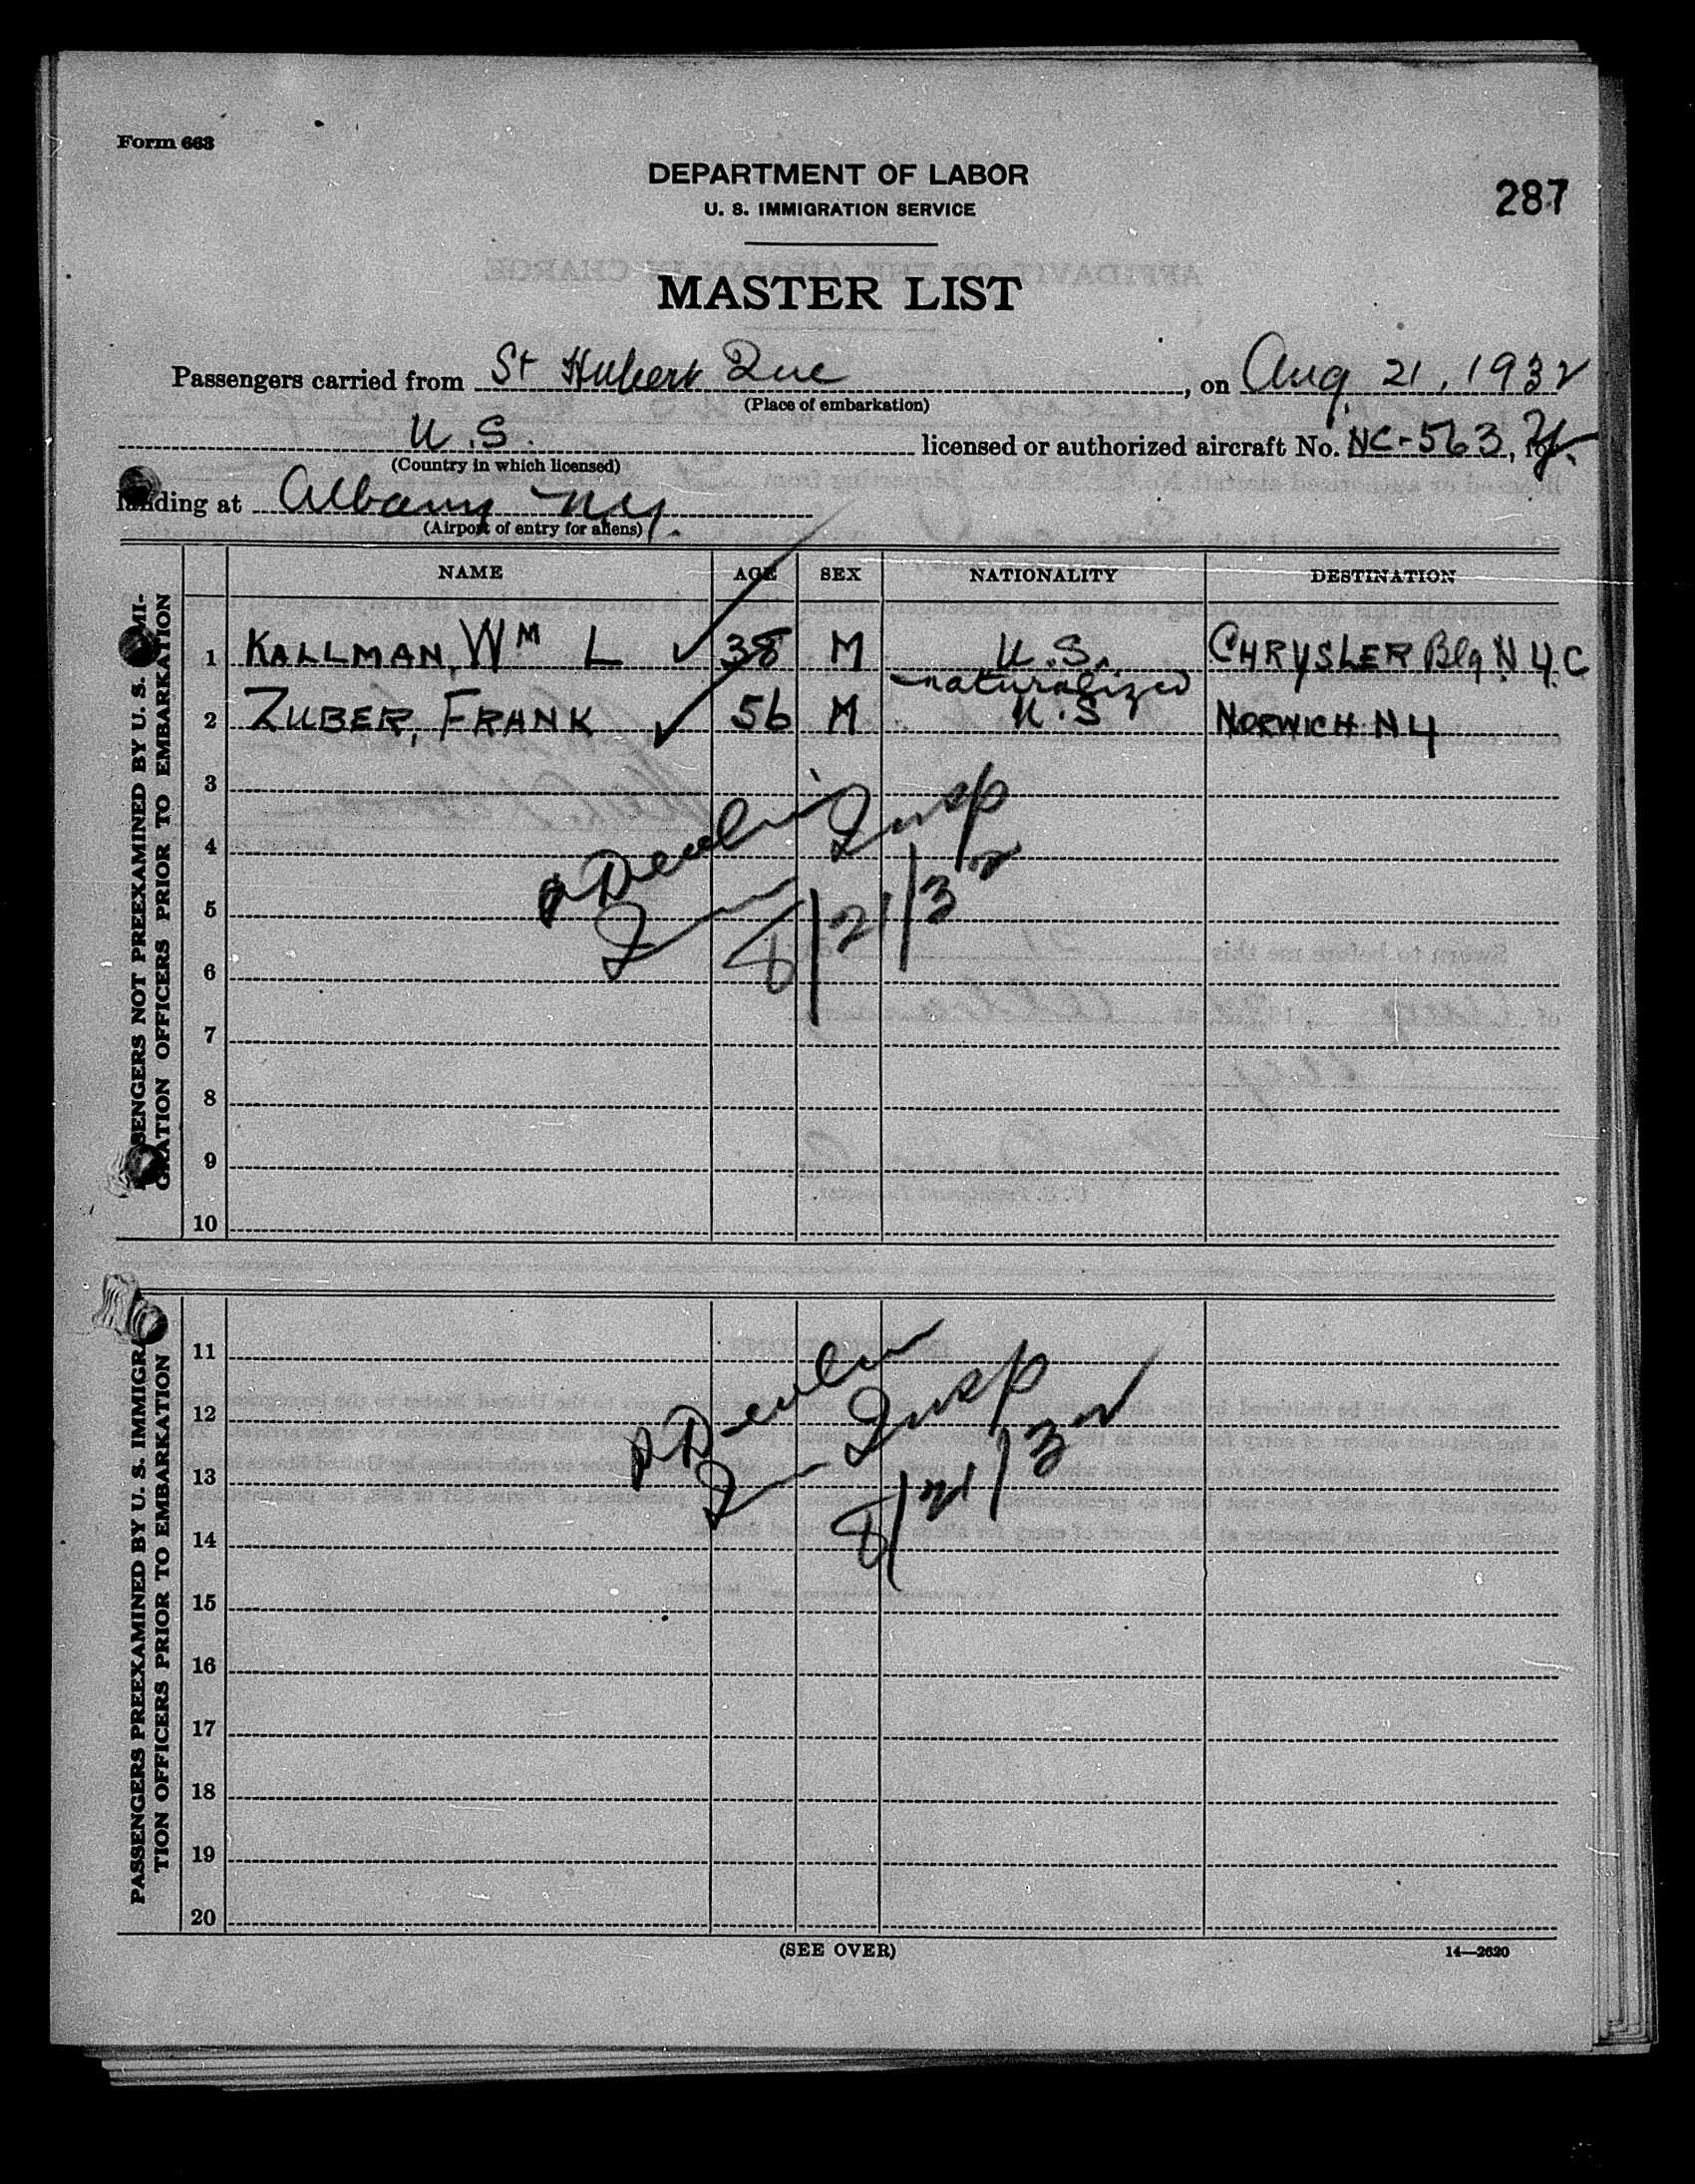 Form 663
DEPARTMENT OF LABOR
U. S. IMMIGRATION SERVICE
287
MASTER LIST
Passengers carried from St Hubert Que, on Aug. 21, 1932
(Place of embarkation)
U.S. licensed or authorized aircraft No. NC-563, Y
(Country in which licensed)
landing at Albany NY.
(Airport of entry for aliens)
NAME AGE SEX NATIONALITY DESTINATION
PASSENGERS NOT PREEXAMINED BY U. S. IMMI-
GRATION OFFICERS PRIOR TO EMBARKATION
1 KALLMAN, Wm L ✓ 38 M U.S. CHRYSLER Blg N Y C
naturalized
2 ZUBER, FRANK ✓ 56 M U.S NORWICH N Y
3
4
5
6
7
8
9
10
Devlin
Insp
8/21/32
PASSENGERS PREEXAMINED BY U. S. IMMIGRA-
TION OFFICERS PRIOR TO EMBARKATION
11
12
13
14
15
16
17
18
19
20
Devlin
Insp
8/21/32
(SEE OVER)
14—2620